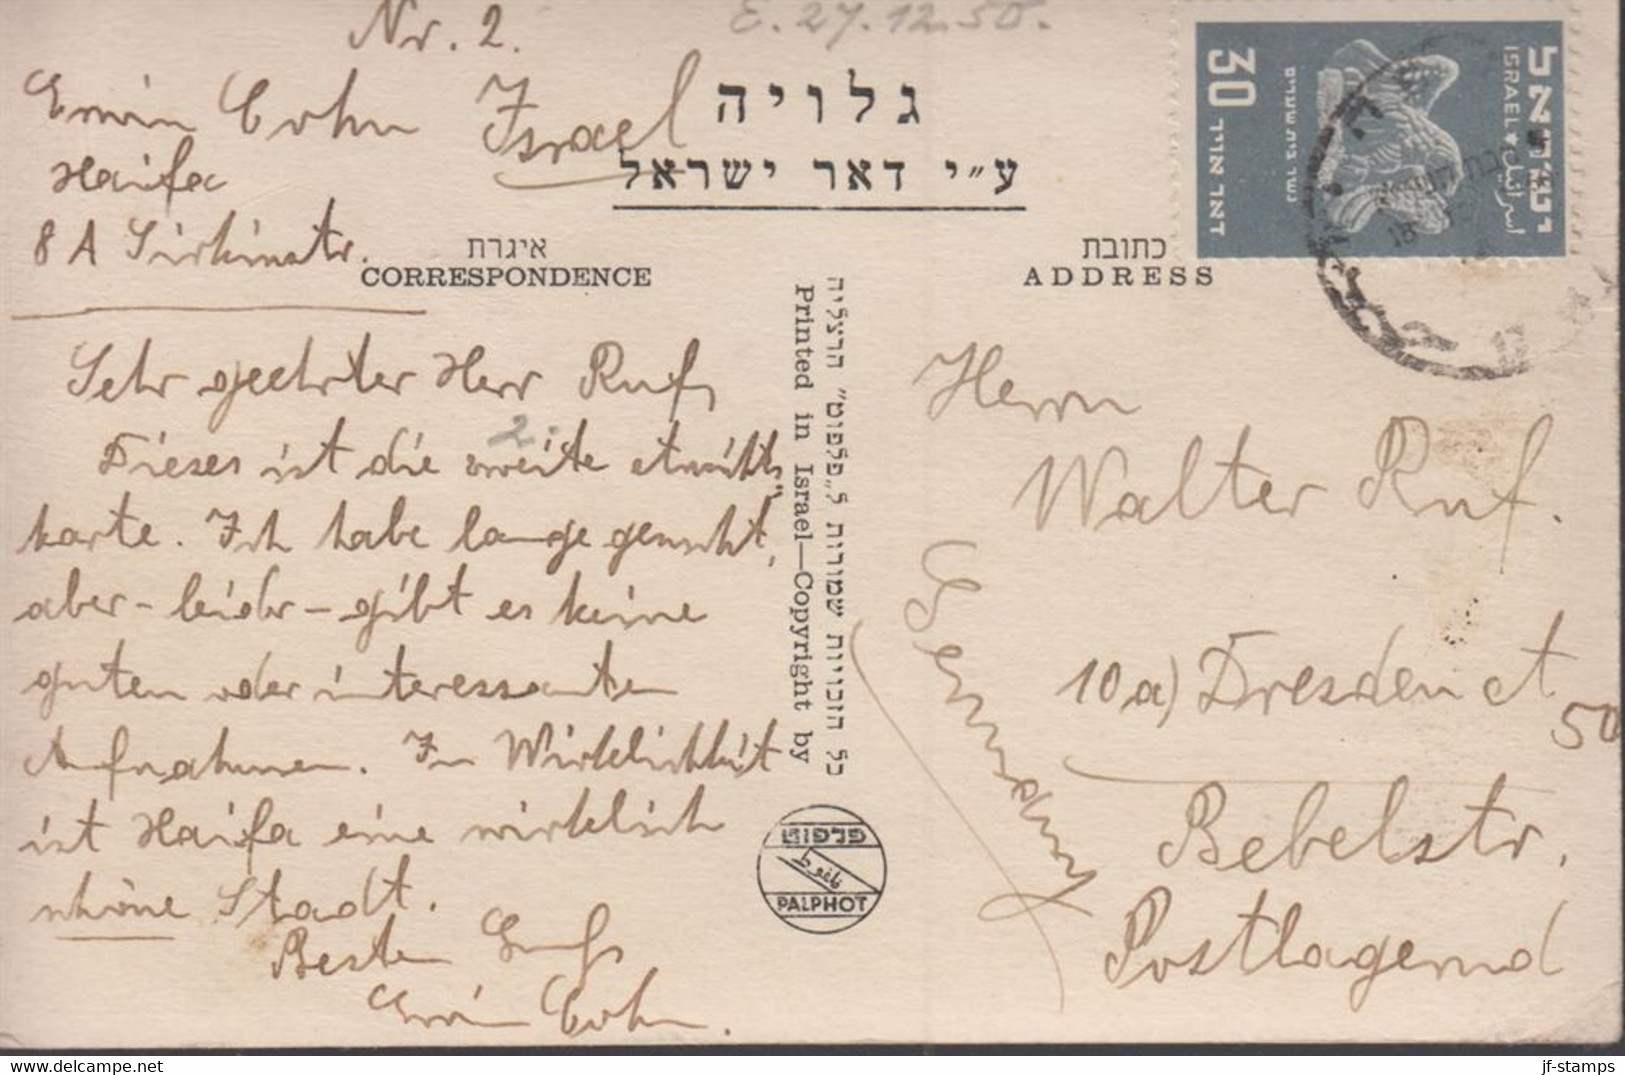 Nr. 2.
E. 27.12.50.
Erwin Cohn Israel
Haifa
8 A Sirkinstr.
גלויה
ע״י דאר ישראל
איגרת
CORRESPONDENCE
כתובת
ADDRESS
30
ישראל
ISRAEL
اسرائيل
דאר אויר
Sehr geehrter Herr Ruf,
2.
Dieses ist die zweite
karte. Ich habe lange gesucht,
aber - leider - gibt es keine
guten oder interessanten
Aufnahmen. In Wirklichkeit
ist Haifa eine wirklich
schöne Stadt.
Besten Gruß
Erwin Cohn.
כל הזכויות שמורות ל״פלפוט״ הרצליה
Printed in Israel—Copyright by
פלפוט
PALPHOT
Herrn
Walter Ruf.
10a) Dresden A
50
Bebelstr.
Postlagernd
Germany
jf-stamps